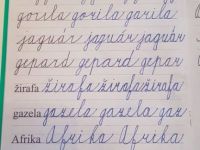 gorila gorila gorila
jaguár jaguár jaguár
gepard gepard gepar
žirafa žirafa žirafa žirafa
gazela gazela gazela gaz
Afrika Afrika Afrika